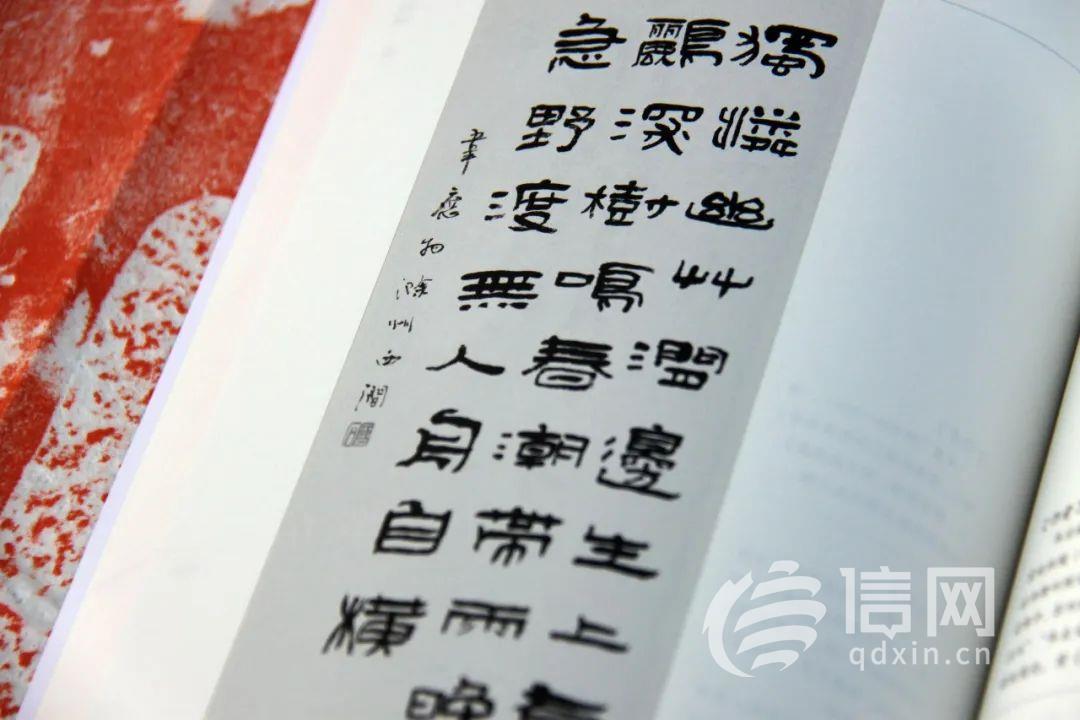 獨憐幽艸澗邊生上有
鸝深樹鳴春潮帶雨晚
急野渡無人舟自橫
韋應物滁州西澗
信网
qdxin.cn